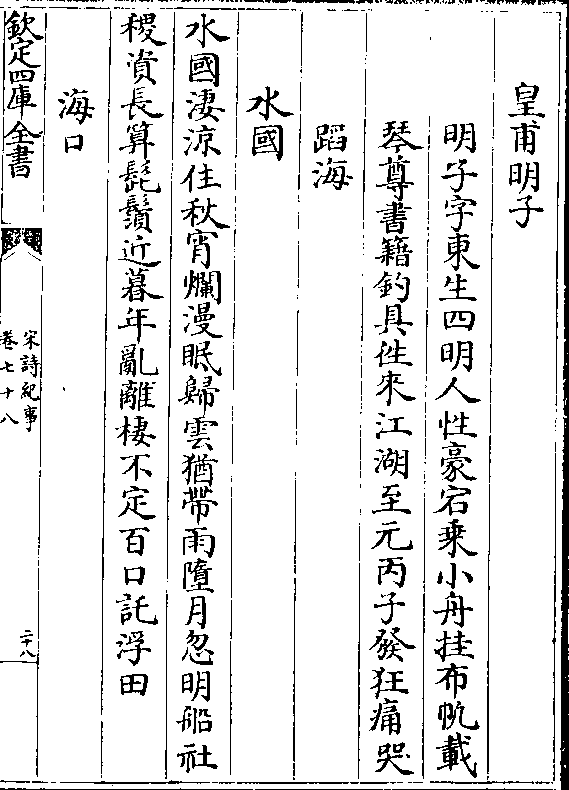 皇甫明子
明子字東生四明人性豪宕乗小舟挂布帆載
琴尊書籍釣具徃來江湖至元丙子發狂痛哭
蹈海
水國
水國淒涼住秋宵爛漫眠歸雲猶帶雨墮月忽明船社
稷資長算髭鬚近暮年亂離棲不定百口託浮田
海口
欽定四庫全書
宋詩紀事
卷七十八
二十八